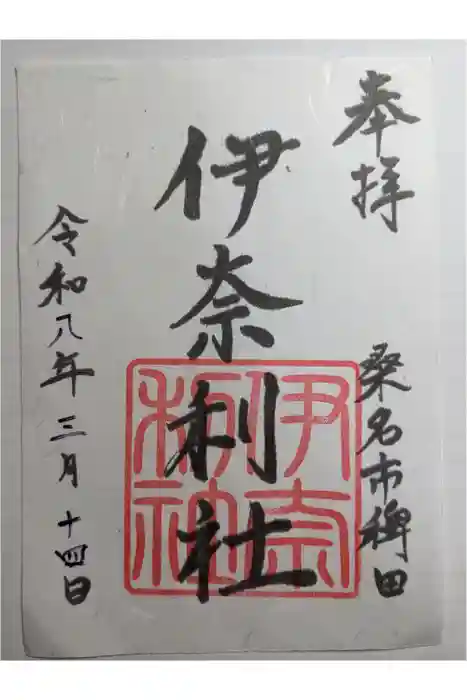 奉拝
桑名市稗田
伊奈利社
伊奈利社
令和八年三月十四日